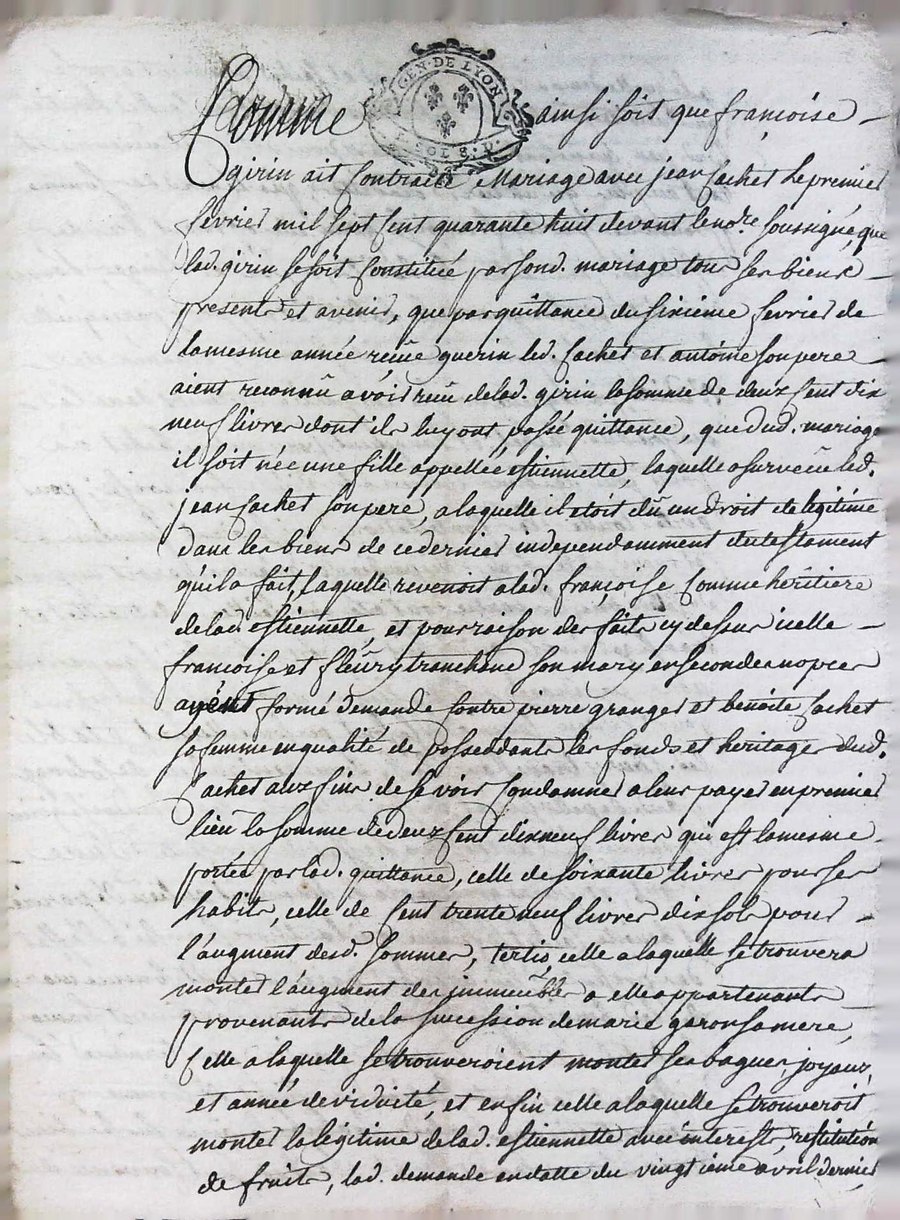 GEN·DE LYON
2 SOLS.D.
Comme ainsi soit que françoise
girin ait Contracté Mariage avec jean Cachet le premier
fevrier mil sept Cent quarante huit devant le no.re soussigné, que
lad. girin se soit Constituée par sond. mariage tous ses biens
presents et avenir, que par quittance du sixième fevrier de
la mesme année reçüe guerin led. Cachet et antoine son pere
aient reconnû avoir reçû de lad. girin la somme de deux Cent dix
neuf livres dont ils luy ont passé quittance, que dud. mariage
il soit née une fille appellée estiennette, laquelle a survécüe led.
jean Cachet son pere, a laquelle il étoit dû un droit de légitime
dans les biens de ce dernier independamment du testament
qu'il a fait, laquelle revenoit a lad. françoise Comme héritière
de lad. estiennette, et pour raison des faits cy dessus icelle
francoise et fleury tranchand son mary en secondes nopces
ayent formé demande Contre pierre granger et benoite Cachet
sa femme en qualité de posseddants les fonds et héritages dud.
Cachet aux fins de se voir Condamner a leur payer en premier
lieu la somme de deux Cent dix neuf livres qui est la mesme
portée par lad. quittance, celle de soixante livres pour ses
habits, celle de Cent trente neuf livres dix sols pour
l'augment desd. sommes, tertio celle a laquelle se trouvera
monter l'augment des immeubles a elle appartenants
provenants de la succession de marie garon sa mere,
Celle a laquelle se trouveroient monter ses bagues, joyaux,
et année de viduité, et enfin celle a laquelle se trouveroit
monter la légitime de lad. estiennette avec interest, restitution
de fruits, lad. demande en datte du vingtième avril dernier